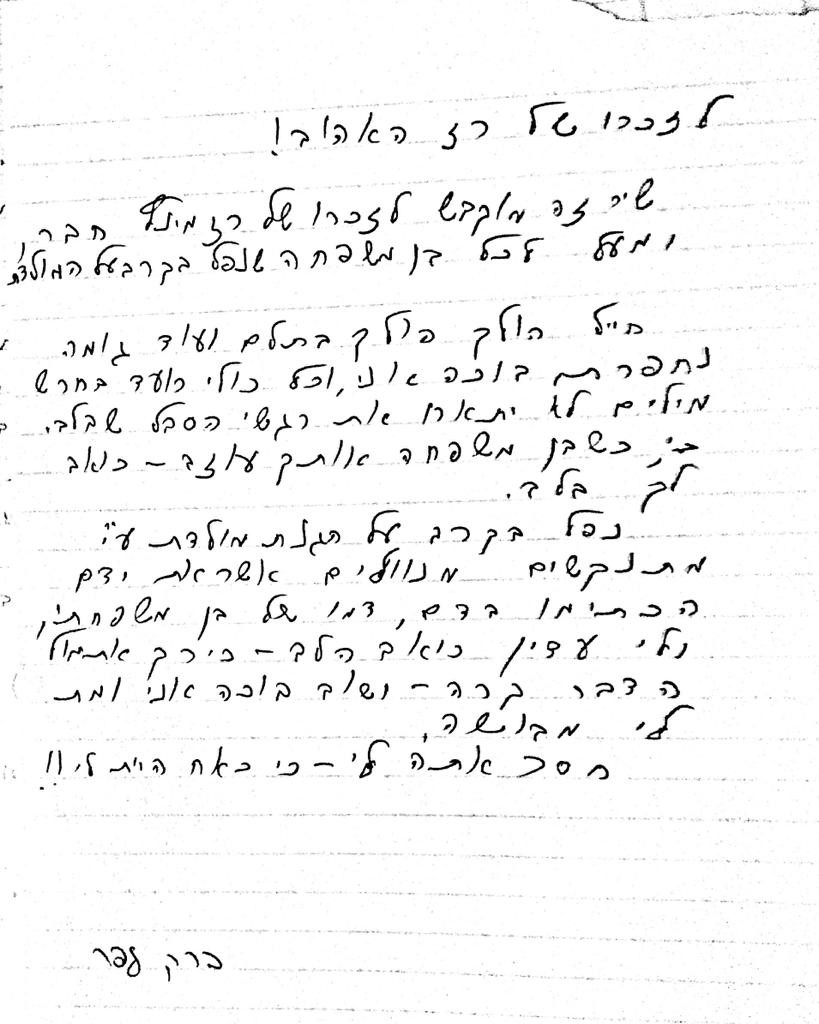 לזכרו של רז האהוב!
שיר זה מוקבש לזכרו של רז מינץ חבר,
ומעל לכל בן משפחה שנפל בקרב על המולדת
חייל הולך פולק בתלם ועוד גומה
נחפרת בוכה אוני, וכל כולי רועד בחרש
מילים לא יתארו את רגשי הסבל שבלב.
כי, כשבן משפחה אותך עוזב - כואב
לך בלב.
נפל בקרב על הגנת מולדת ע"י
מתנקשים מנוולים אשר את ידם
הכתימו בדם, דמו של בן משפחתי,
ולי עדין כואב הלב - כי רק אתמול
הדבר קרה - ושוב בוכה אני ומת
לי מבושה.
חסר אתה לי - כי כאח היית לי!!
ברק עפר